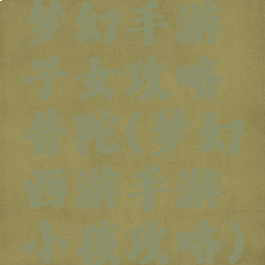 梦幻手游
子女攻略
普陀(梦幻
西游手游
小孩攻略)